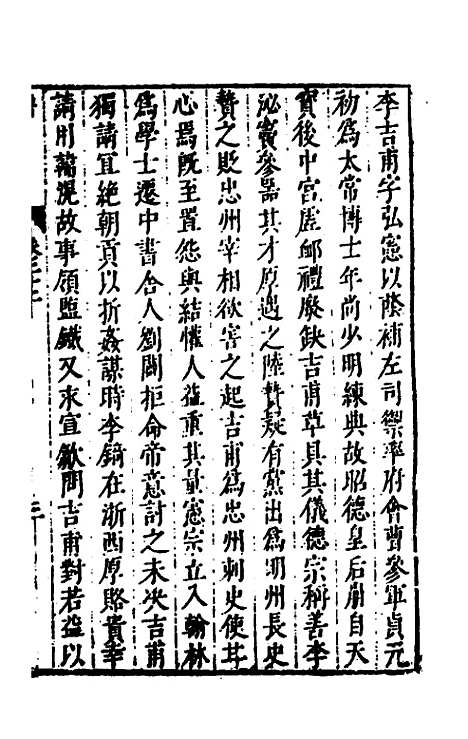 李吉甫字弘憲以蔭補左司禦率府倉曹參軍貞元
初為太常博士年尚少明練典故昭德皇后崩自天
寶後中宮虛卹禮廢缺吉甫草具其儀德宗稱善李
泌竇參器其才原遇之陸贄疑有黨出為明州長史
贄之貶忠州宰相欲害之起吉甫為忠州刺史使甘
心焉既至置怨與結懽人益重其量憲宗立入翰林
為學士遷中書舍人劉闢拒命帝意討之未决吉甫
獨請宜絕朝貢以折姦謀時李錡在浙西原賂貴幸
請用韓滉故事領鹽鐵又求宣歙問吉甫對若益以